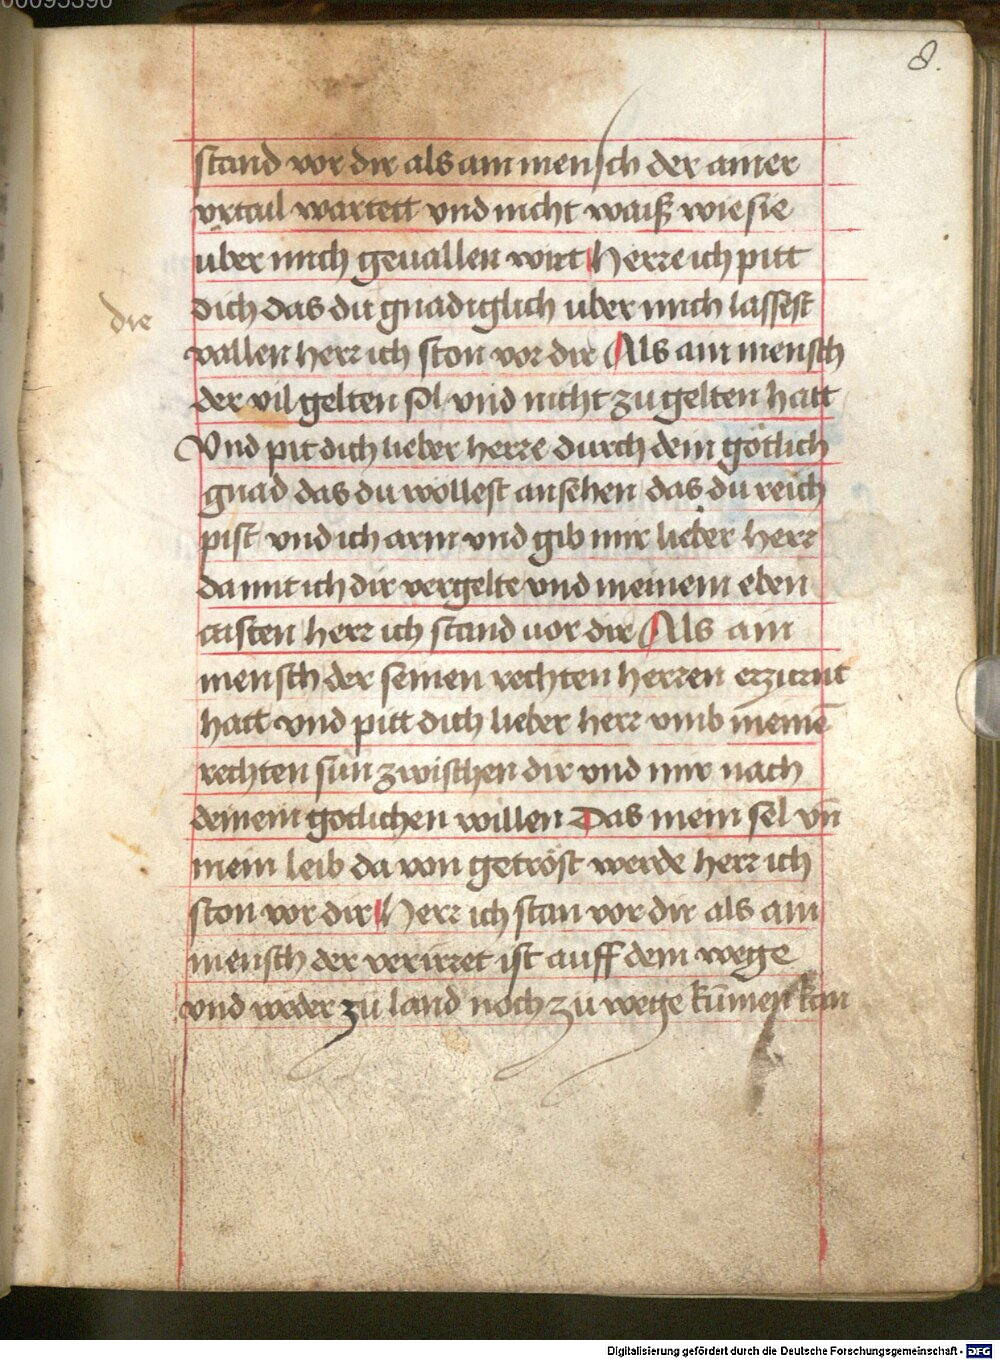 8.
stand vor dir als ain mensch der ainer
vrtail wartett vnd nicht waiß wie sie
uber mich geuallen wirt Herre ich pitt
dich das du gnadiglich uber mich lassest
die
vallen herr ich ston vor dir Als ain mensch
der vil gelten sol vnd nicht zu gelten hatt
Vnd pit dich lieber herre durch dein götlich
gnad das du wollest ansehen das du reich
pist vnd ich arm vnd gib mir lieber herr
da mit ich dir vergelte vnd meinem eben
cristen herr ich stand uor dir Als ain
mensch der seinen rechten herren erzürnt
hatt vnd pitt dich lieber herr vmb meinē
rechten sün zwischen dir vnd mir nach
deinem gotlichen willen Das mein sel vn̄
mein leib da von getröst werde herr ich
ston vor dir Herr ich stan vor dir als ain
mensch der verirret ist auff dem wege
vnd weder zü land noch zü wege kümen kan
Digitalisierung gefördert durch die Deutsche Forschungsgemeinschaft - DFG